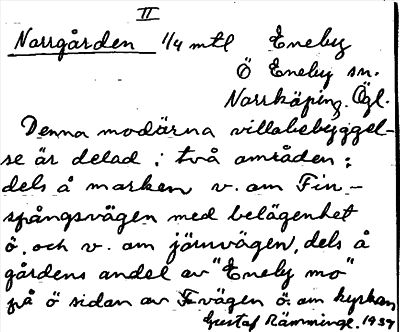 II
Norrgården 1/4 mtl Eneby
Ö Eneby sn.
Norrköping. Ögl.
Denna modärna villabebyggel-
se är delad i två områden:
dels å marken v. om Fin-
spångsvägen med belägenhet
ö. och v. om järnvägen, dels å
gårdens andel av "Eneby mo"
på ö sidan av F-vägen ö. om kyrkan
Gustaf Rämminge. 1937